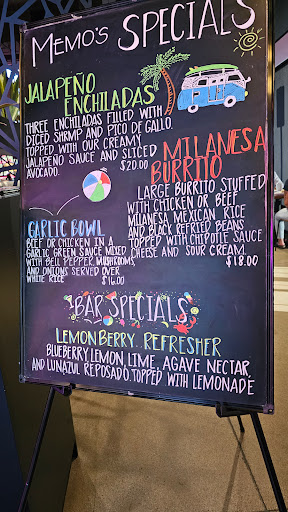 MEMO'S SPECIALS
JALAPEÑO
ENCHILADAS
THREE ENCHILADAS FILLED WITH
DICED SHRMP AND PICO DE GALLO.
TOPPED WITH OUR CREAMY
JALAPEÑO SAUCE AND SLICED
AVOCADO. $20.00
MILANESA
BURRITO
LARGE BURRITO STUFFED
WITH CHICKEN OR BEEF
MILANESA, MEXICAN RICE
AND BLACK REFRIED BEANS
TOPPED WITH CHIPOTLE SAUCE
CHEESE AND SOUR CREAM.
$18.00
GARLIC BOWL
BEEF OR CHICKEN IN A
GARLIC GREEN SAUCE MIXED
WITH BELL PEPPER, MUSHROOMS,
AND ONIONS SERVED OVER
WHITE RICE $16.00
BAR SPECIALS
LEMONBERRY REFRESHER
BLUEBERRY, LEMON LIME, AGAVE NECTAR,
AND LUNAZUL REPOSADO. TOPPED WITH LEMONADE